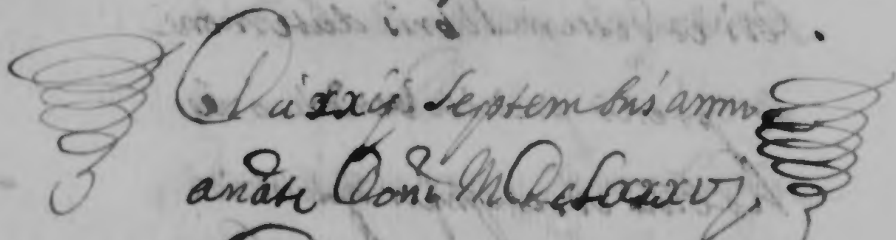 Die xxij Septembris anno
a nate Doni MDcLxxxvj